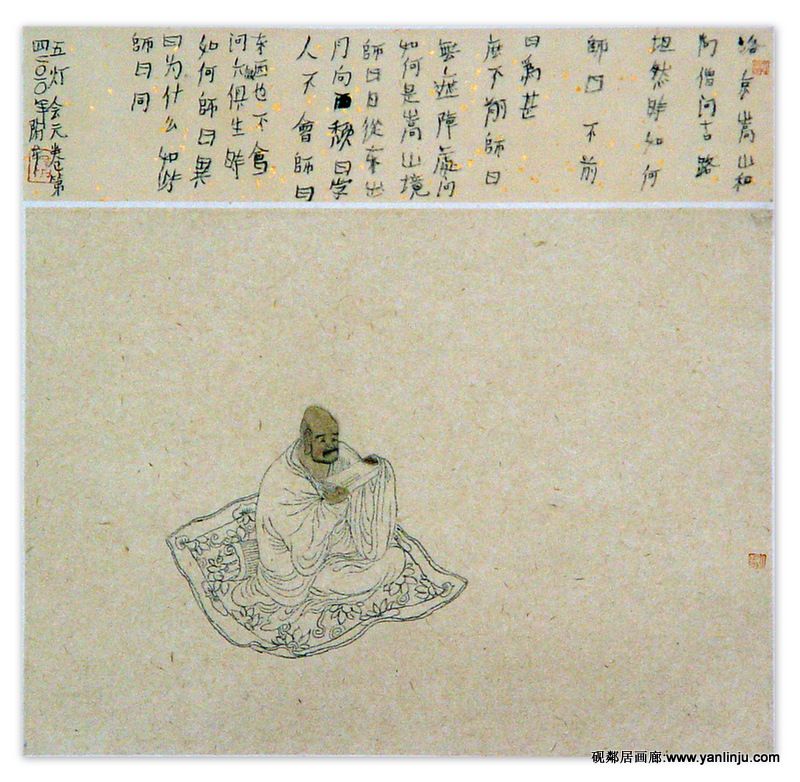 洛京嵩山和
尚僧问古路
坦然時如何
師曰不前
曰爲甚
麽不前師曰
無遮障處问
如何是嵩山境
師曰日從东出
月向西頹曰学
人不會師曰
东西也不會
问六俱生時
如何師曰異
曰为什么如此
師曰同
五灯会元卷第
四二〇〇年
砚鄰居画廊:www.yanlinju.com